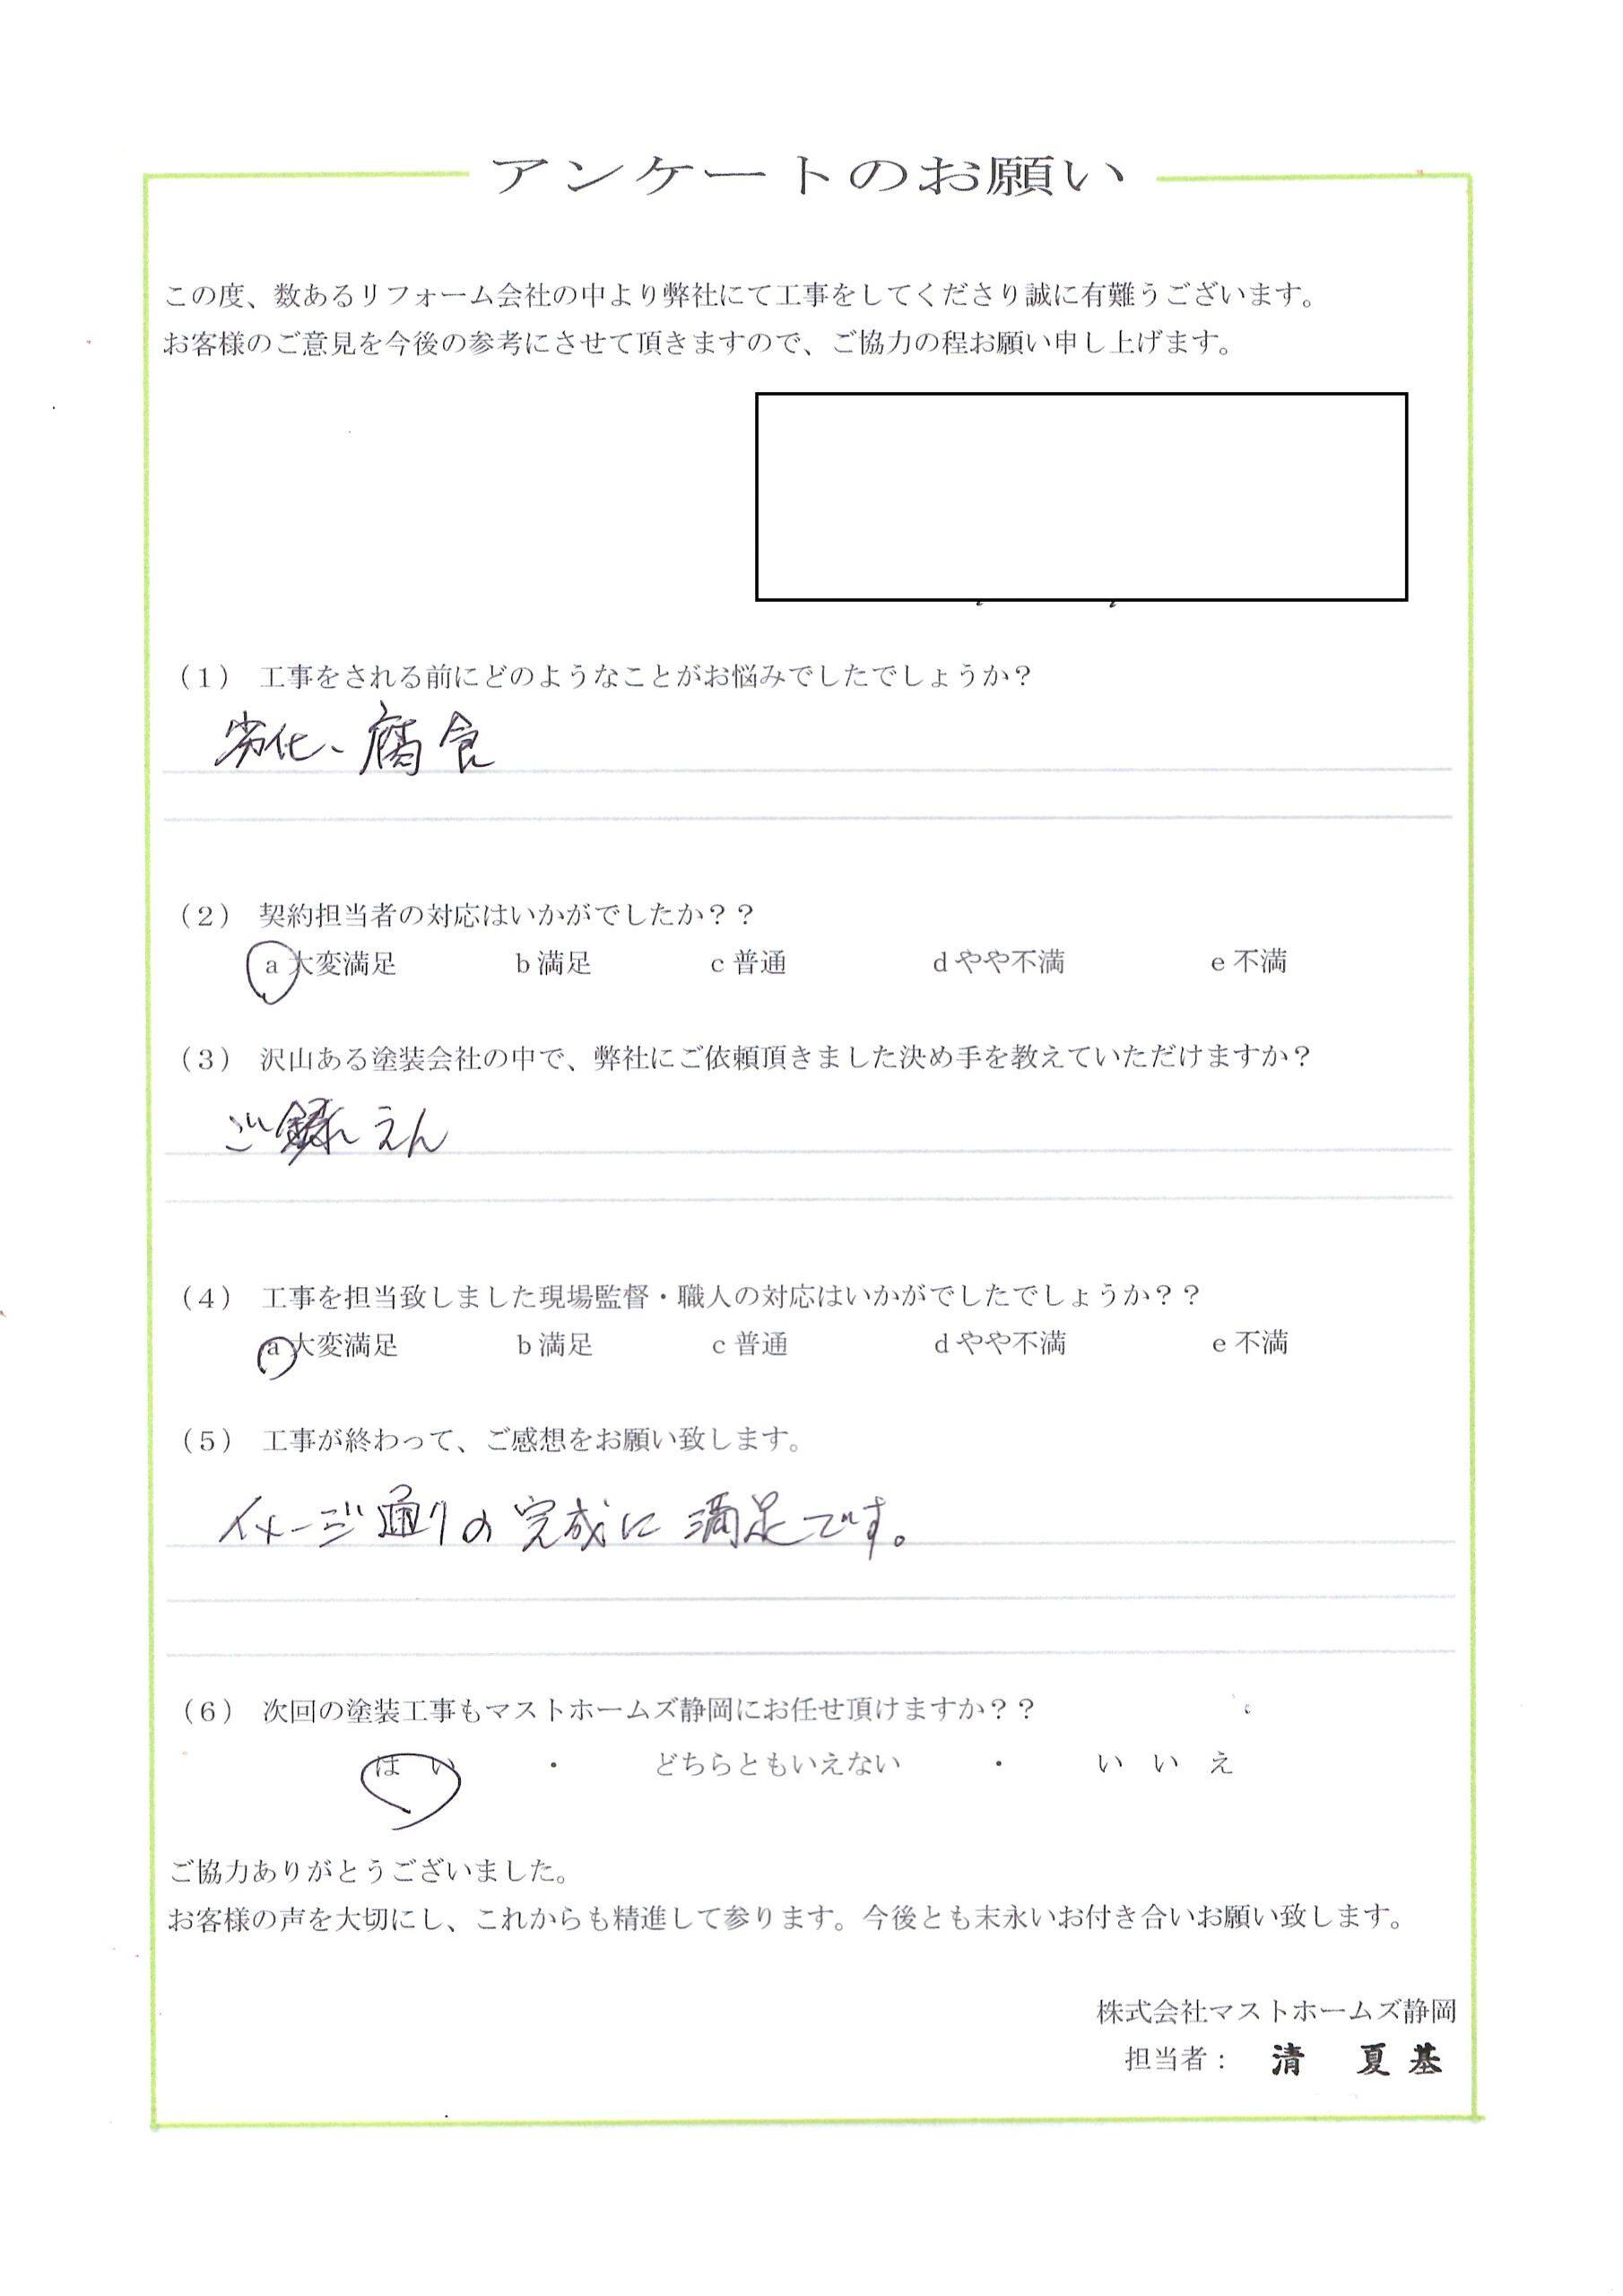 アンケートのお願い
この度、数あるリフォーム会社の中より弊社にて工事をしてくださり誠に有難うございます。
お客様のご意見を今後の参考にさせて頂きますので、ご協力の程お願い申し上げます。
（１） 工事をされる前にどのようなことがお悩みでしたでしょうか？
劣化、腐食
（２） 契約担当者の対応はいかがでしたか？？
a 大変満足 b 満足 c 普通 d やや不満 e 不満
（３） 沢山ある塗装会社の中で、弊社にご依頼頂きました決め手を教えていただけますか？
ご えん
（４） 工事を担当致しました現場監督・職人の対応はいかがでしたでしょうか？？
a 大変満足 b 満足 c 普通 d やや不満 e 不満
（５） 工事が終わって、ご感想をお願い致します。
イメージ通りの完成に満足です。
（６） 次回の塗装工事もマストホームズ静岡にお任せ頂けますか？？
は い ・ どちらともいえない ・ い い え
ご協力ありがとうございました。
お客様の声を大切にし、これからも精進して参ります。今後とも末永いお付き合いお願い致します。
株式会社マストホームズ静岡
担当者： 清 夏基